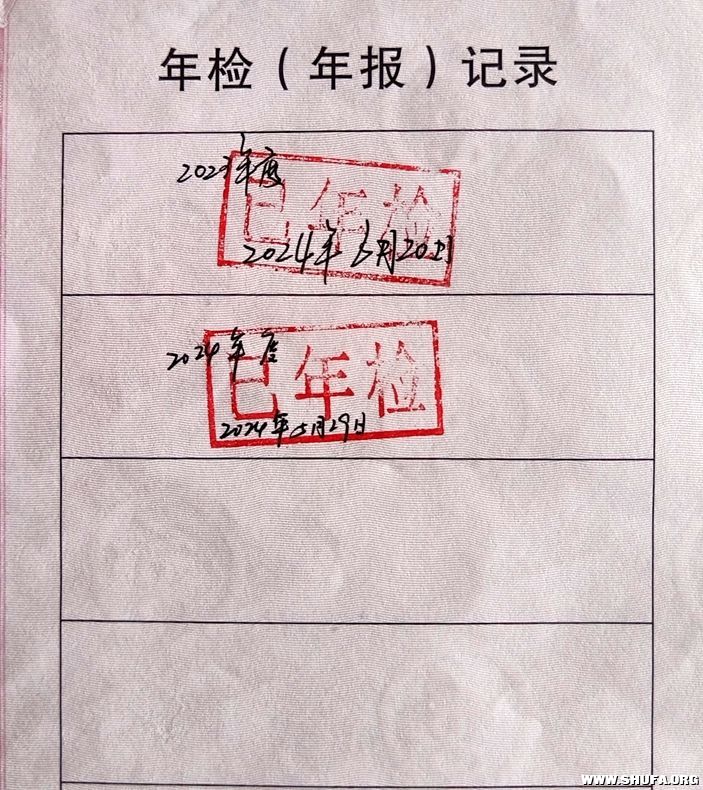 年检（年报）记录
2023年度
已年检
2024年3月20日
2024年度
已年检
2024年5月29日
WWW.SHUFA.ORG